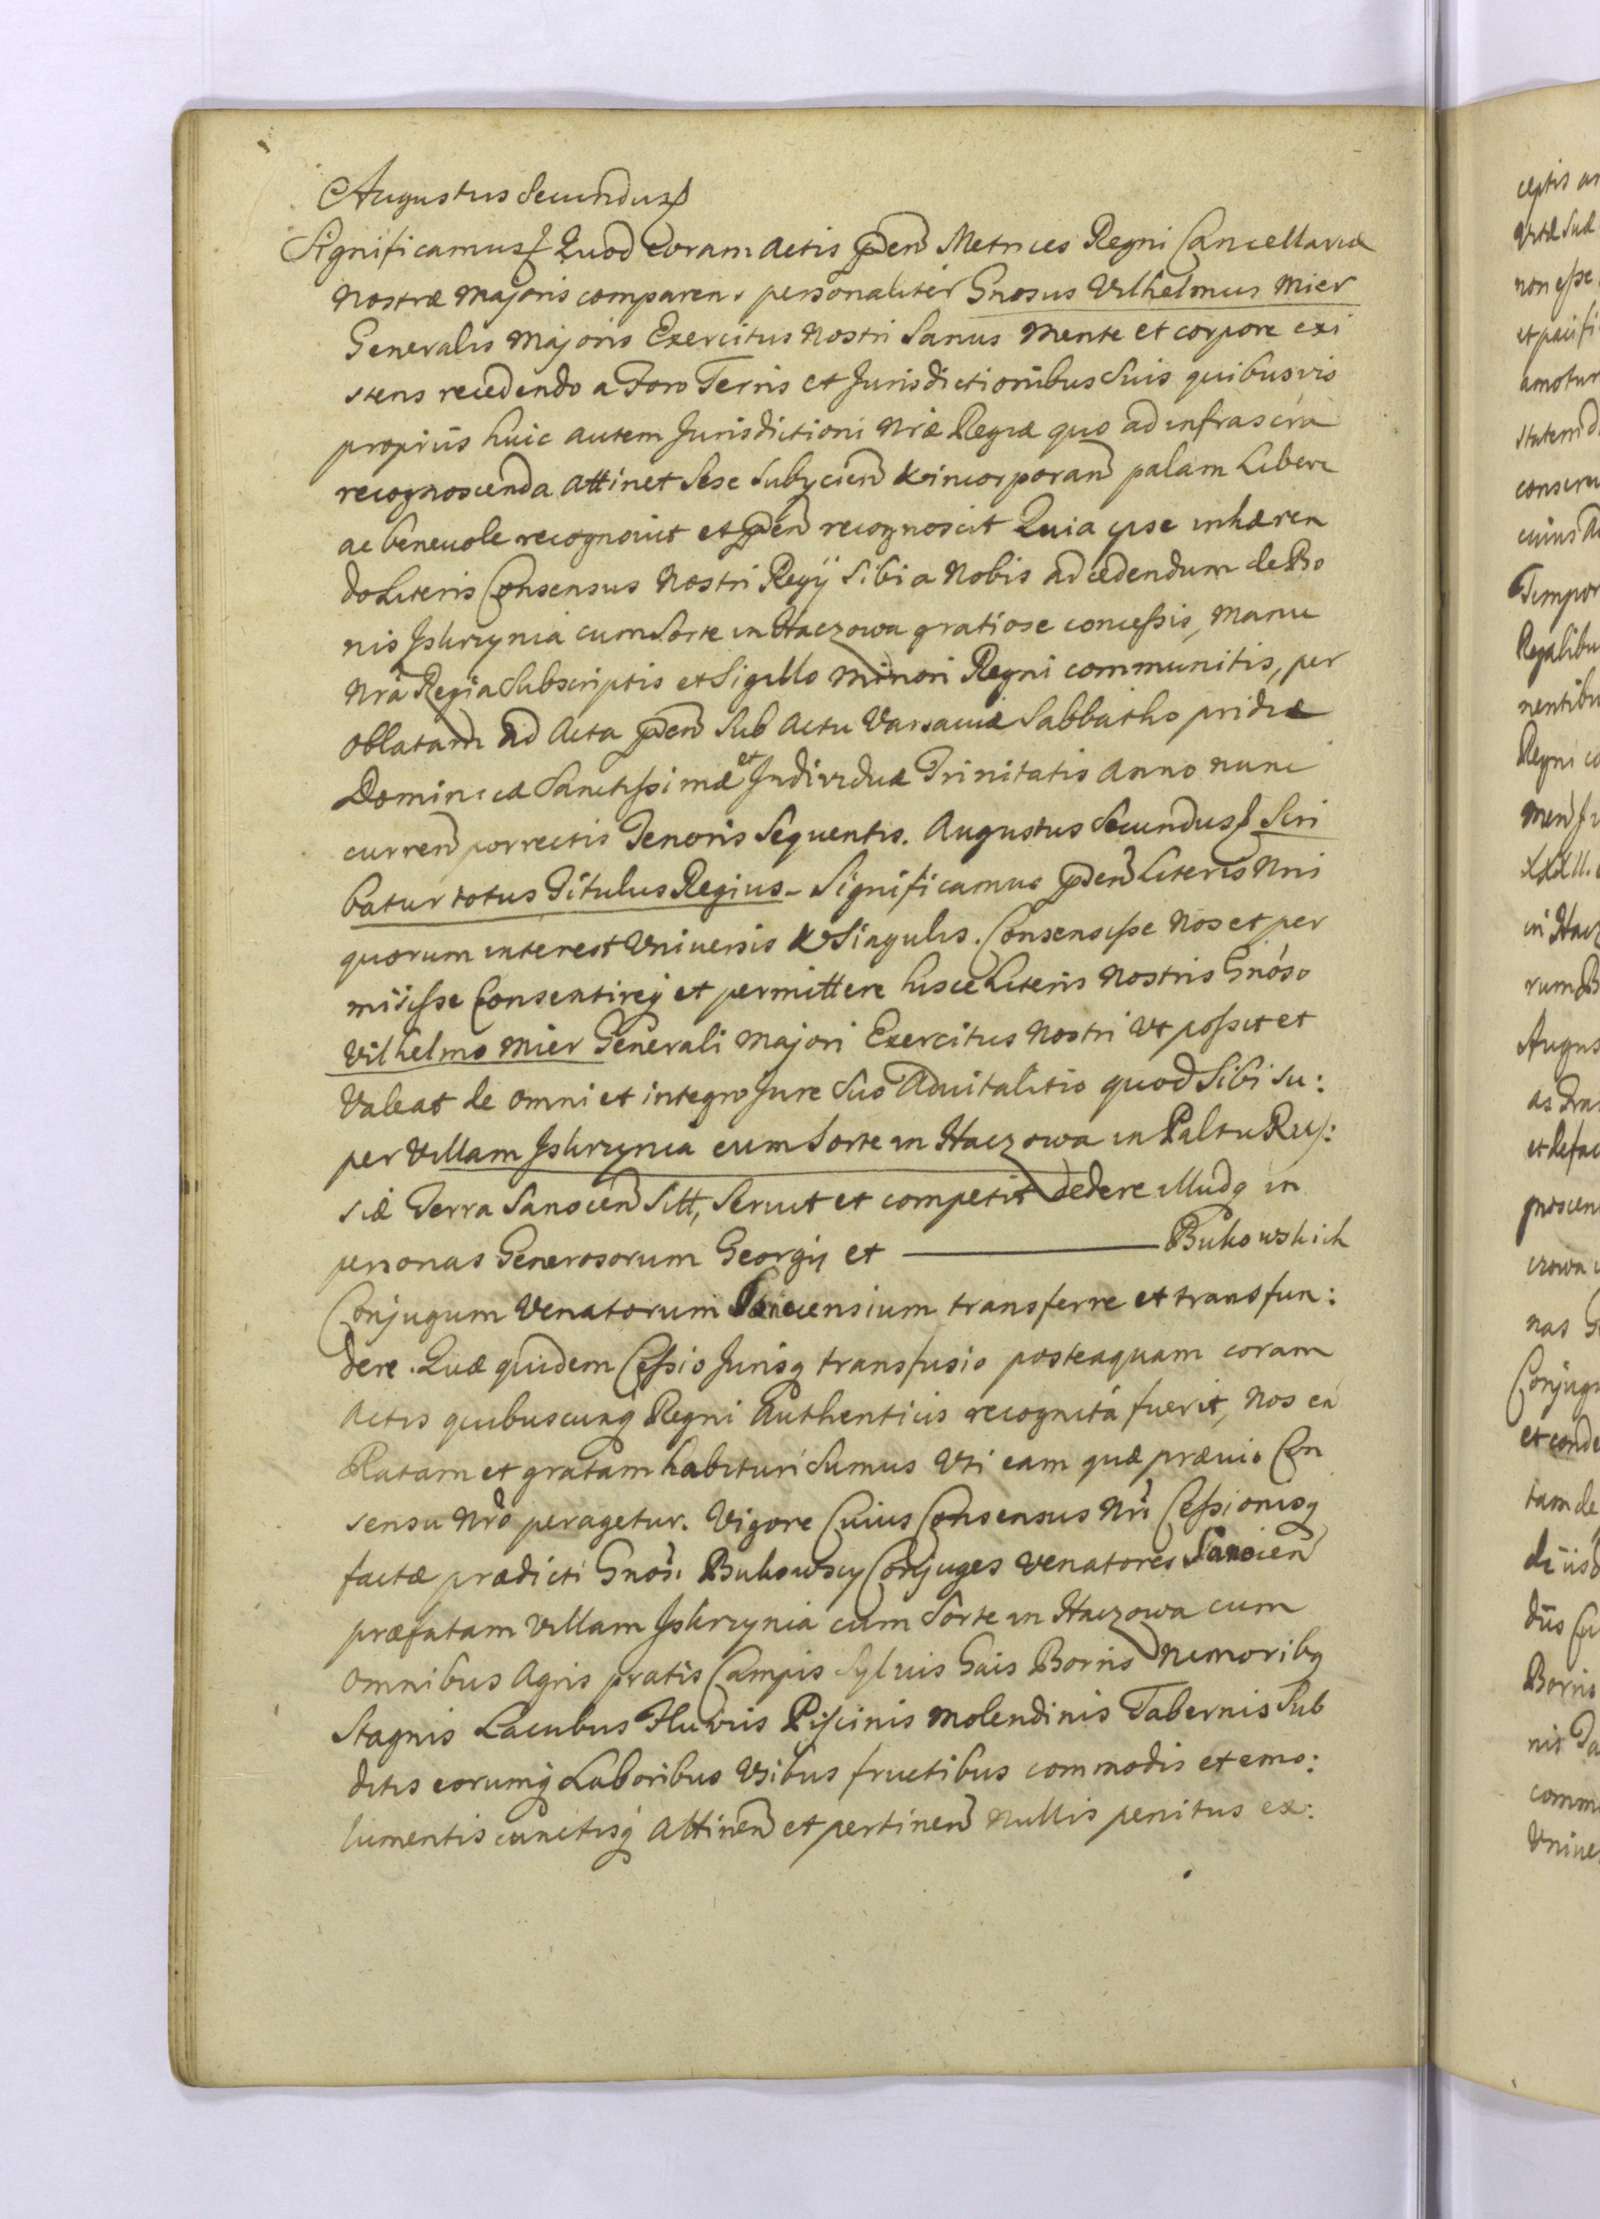 Augustus Secundus
Significamus Quod coram Actis pñen Metrices Regni Cancellariæ
Nostræ Majoris comparens personaliter Gnosus Vilhelmus Mier
Generalis Majoris Exercitus Nostri Sanus mente et corpore exi
stens recedendo a Foro Terris et Jurisdictionibus Suis quibusvis
proprijs huic autem Jurisdictioni Nræ Regiæ quo ad infrascrã
recognoscenda attinet Sese Subycien & incorporan palam Libere
ac benevole recognovit et pñen recognoscit Quia ipse inhæren
do Literis Consensus Nostri Regij Sibi a Nobis ad cedendum de Bo
nis Jskrzynia cum Sorte in Haczowa gratiose concessis, Manu
Nrã Regia Subscriptis et Sigillo Minori Regni communitis, per
Oblatam ad Acta pñen Sub Actu Varsaviæ Sabbatho pridie
Dominicæ Sanctissimæ et Individuæ Trinitatis Anno nunc
curren porrectis Tenoris Sequentis. Augustus Secundus Scri
batur totus Titulus Regius - Significamus pñen Literis Nris
quorum interest Universis & Singulis. Consensisse Nos et per
misisse Consentireq et permittere hisce Literis Nostris Gnóso
Vilhelmo Mier Generali Majori Exercitus Nostri Vt possit et
Valeat de omni et integro Jure Suo Advitalitio quod Sibi Su:
per Villam Jskrzynia cum Sorte in Haczowa in Paltu Rus:
siæ Terra Sanocen Sitt, Servit et competit cedere illudq in
personas Generosorum Georgij et ———— Bukowskich
Conjugum Venatorum Sanocensium transferre et transfun:
dere. Quæ quidem Cessio Jurisq transfusio posteaquam coram
Actis quibuscunq Regni Authenticis recognita fuerit, Nos eã
Ratam et gratam habituri Sumus Vti eam quæ prævio Con
sensu Nrõ peragetur. Vigore Cuius Consensus Nri Cessionisq
factæ prædicti Gnosi Bukowscy Conjuges Venatores Sanocien
præfatam Villam Jskrzynia cum Sorte in Haczowa cum
omnibus Agris pratis Campis Sylvis Gais Borris Nemoribq
Stagnis Lacubus Fluviis Piscinis Molendinis Tabernis Sub
ditis eorumq Laboribus Vsibus fructibus commodis et emo:
lumentis cunctisq Attinen et pertinen Nullis penitus ex: